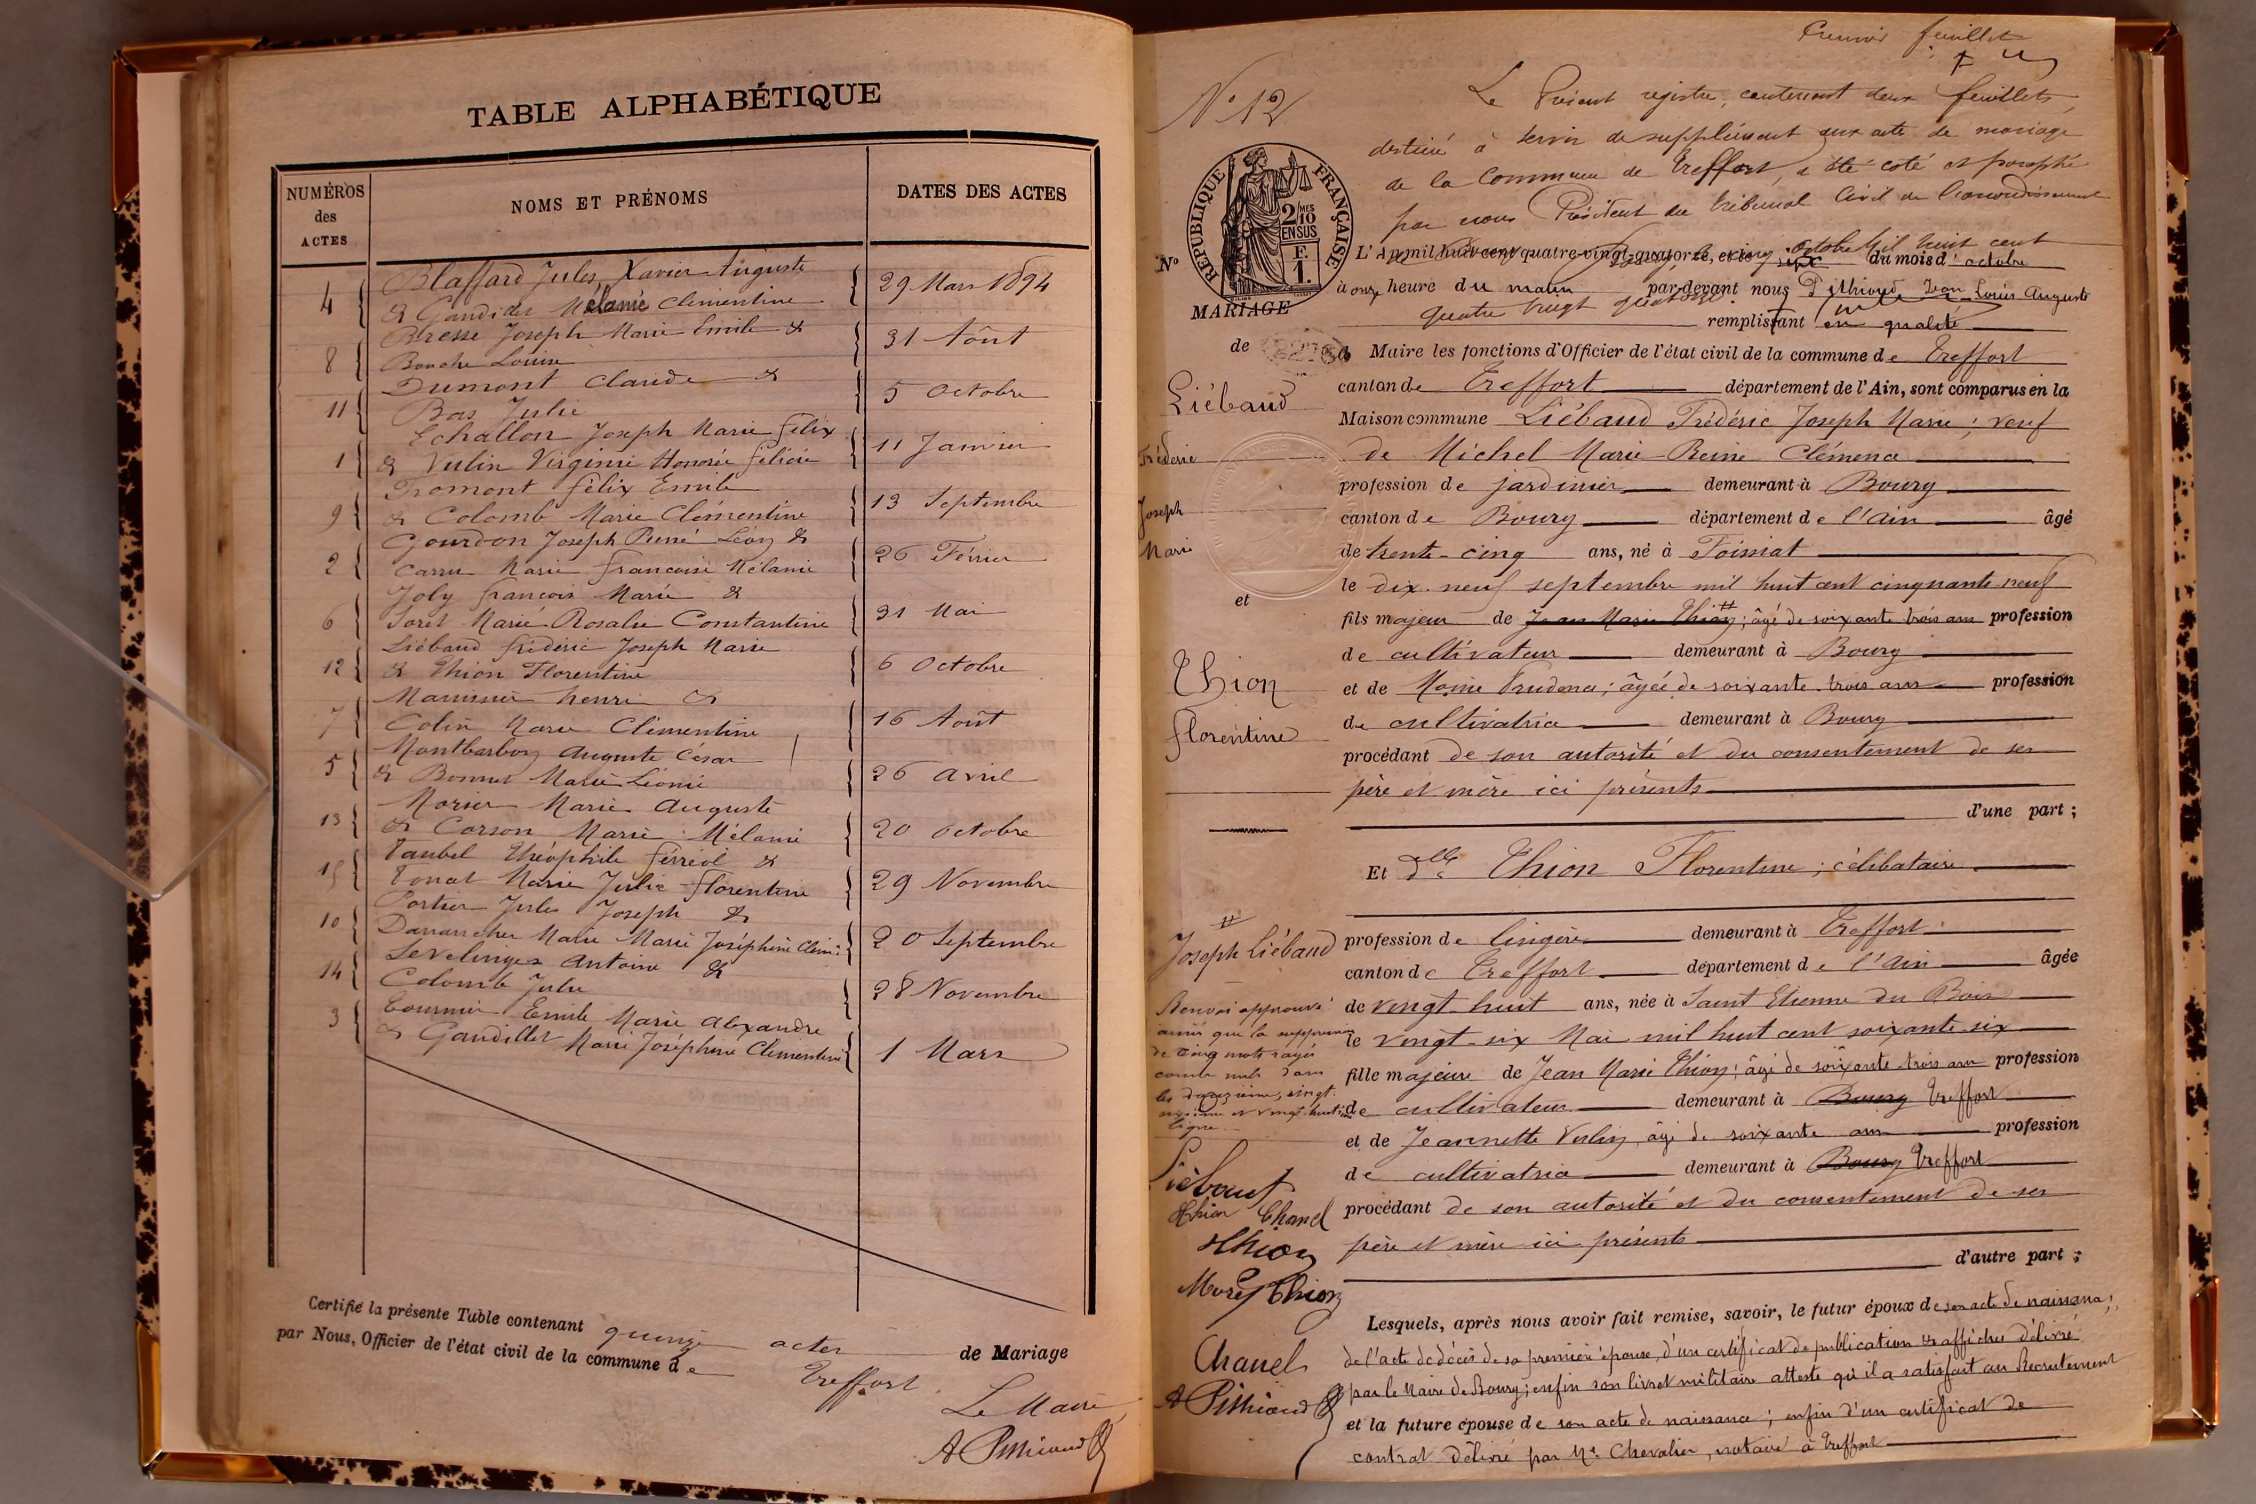 TABLE ALPHABÉTIQUE
NUMÉROS des ACTES
NOMS ET PRÉNOMS
DATES DES ACTES
4 Blaffard Jules, Xavier Auguste
& Gandillet Mélanie Clémentine 29 Mars 1894
8 Bresse Joseph Marie Emile &
Bouche Louise 31 Août
11 Dumont Claude &
Bas Julie 5 Octobre
1 Echallon Joseph Marie Félix
& Vulin Virginie Honorée Félicie 11 Janvier
9 Fromont Félix Emile
& Colomb Marie Clémentine 13 Septembre
2 Gourdon Joseph René Léon &
Carru Marie Françoise Mélanie 26 Février
6 Joly François Marie &
Soret Marie Rosalie Constantine 31 Mai
12 Liébaud Frédéric Joseph Marie
& Thion Florentine 6 Octobre
7 Henri &
Colin Marie Clémentine 16 Août
5 Montbarbon Auguste César
& Bonnet Marie Léonie 26 Avril
13 Morier Marie Auguste
& Corson Marie Mélanie 20 Octobre
15 Théophile Ferréol &
Tonat Marie Julie Florentine 29 Novembre
10 Portier Jules Joseph &
Marie Marie Joséphine Clém: 20 Septembre
14 Sevelinges Antoine &
Colomb Julie 28 Novembre
3 Tournier Emile Marie Alexandre
& Gandillet Marie Joséphine Clémentine 1 Mars
Certifié la présente Table contenant quinze actes de Mariage
par Nous, Officier de l'état civil de la commune de Treffort
Le Maire
A Pithioud
Premier feuillet
N° 12
Le Présent registre, contenant deux feuillets,
destiné à servir de supplément aux acte de mariage
de la Commune de Treffort, a été coté et paraphé
par nous Président du tribunal Civil de l'arrondissement
RÉPUBLIQUE FRANÇAISE
2/10 MES EN SUS
F. 1.
N°
MARIAGE
L'An mil huit cent quatre-vingt-quatorze, et le six du mois d'octobre
à onze heure du matin par-devant nous Pithioud Jean Louis Auguste
quatre vingt quatorze
remplissant en qualité
de
de Maire les fonctions d'Officier de l'état civil de la commune de Treffort
canton de Treffort département de l'Ain, sont comparus en la
Liébaud
Maison commune Liébaud Frédéric Joseph Marie; veuf
de Michel Marie-Reine Clémence
Frédéric
profession de jardinier demeurant à Bourg
Joseph
canton de Bourg département de l'Ain âgé
Marie
de trente-cinq ans, né à Foissiat
le dix-neuf septembre mil huit cent cinquante-neuf
et
fils majeur de Jean Marie Thion #; âgé de soixante trois ans profession
de cultivateur demeurant à Bourg
Thion
et de Moine Prudence; âgée de soixante-trois ans profession
Florentine
de cultivatrice demeurant à Bourg
procédant de son autorité et du consentement de ses
père et mère ici présents
d'une part;
Et Dlle Thion Florentine; célibataire
# Joseph Liébaud
profession de lingère demeurant à Treffort
canton de Treffort département de l'Ain âgée
Renvoi approuvé
ainsi que la suppression
de cinq mots rayés
comme nuls dans
les douzième, vingt-
et vingt-huitième
ligne
de vingt huit ans, née à Saint Etienne du Bois
le vingt-six Mai mil huit cent soixante-six
fille majeure de Jean Marie Thion; âgé de soixante-trois ans profession
de cultivateur demeurant à Bourg Treffort
et de Jeannette Vulin, âgé de soixante ans profession
de cultivatrice demeurant à Bourg Treffort
procédant de son autorité et du consentement de ses
père et mère ici présents
d'autre part;
Liébaud
Thion Chanel
Thion
Morel Thion
Chanel
A Pithioud
Lesquels, après nous avoir fait remise, savoir, le futur époux de son acte de naissance;
de l'acte de décès de sa première épouse, d'un certificat de publication et affiches délivré
par le Maire de Bourg; enfin son livret militaire atteste qu'il a satisfait au Recrutement
et la future épouse de son acte de naissance; enfin d'un certificat de
contrat délivré par Me Chevalier, notaire à Treffort